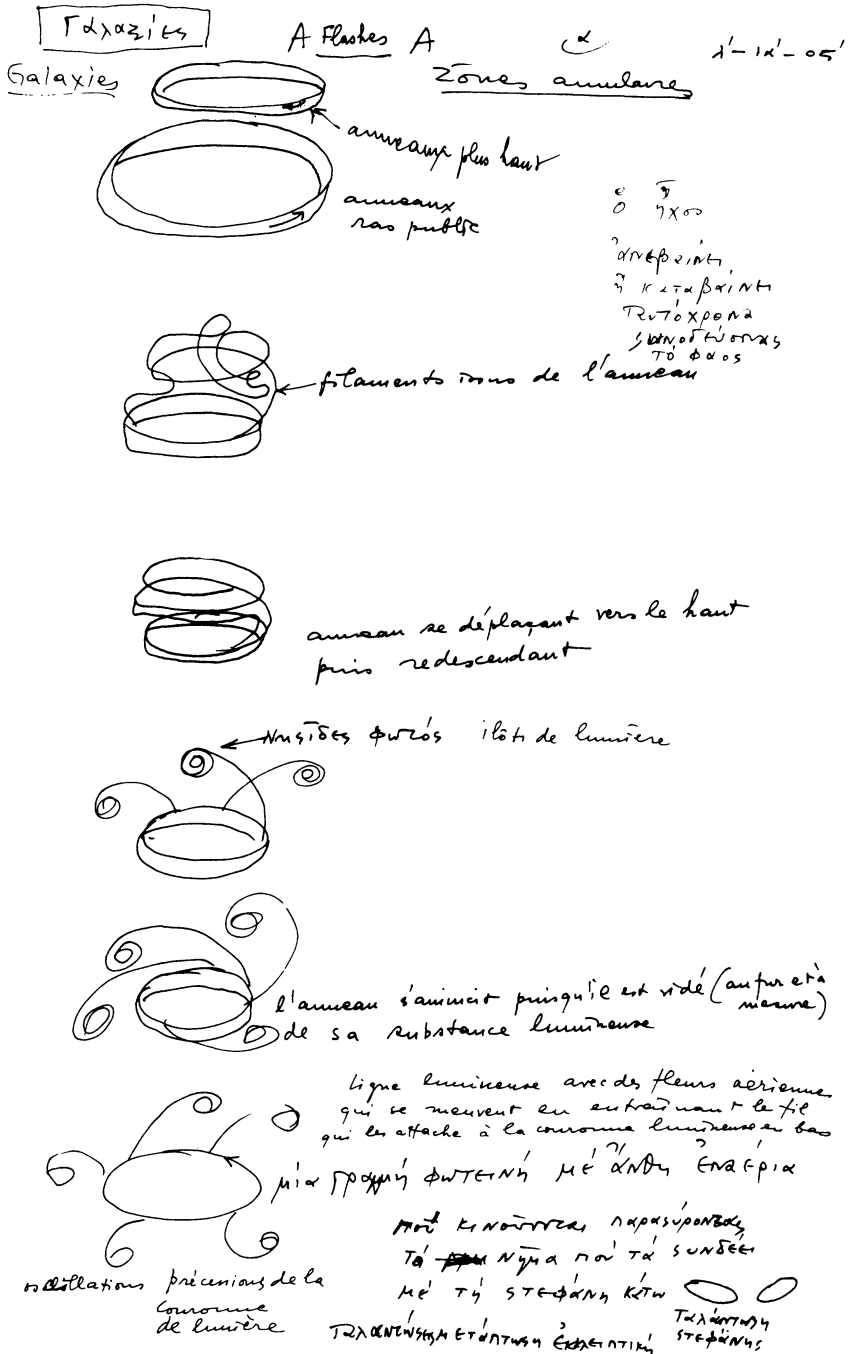 Γαλαξίες
A Flashes A
α
Galaxies
Zones annulaires
anneaux plus haut
anneaux
ras public
ὁ ἦχος
ἀνεβαίνει
ἢ καταβαίνει
ταυτόχρονα
συνοδεύοντας
τὸ φάος
filaments issus de l'anneau
anneau se déplaçant vers le haut
puis redescendant
Νησῖδες φωτός îlots de lumière
l'anneau s'amincit puisqu'il est vidé (au fur et à
mesure)
de sa substance lumineuse
Ligne lumineuse avec des fleurs aériennes
qui se meuvent en entraînant le fil
qui les attache à la couronne lumineuse en bas
μία γραμμή φωτεινή μέ ἄνθη ἐναέρια
πού κινοῦνται παρασύροντας
τό νῆμα πού τά συνδέει
μέ τή στεφάνη κάτω
oscillations précessions de la
couronne
de lumière
Ταλάντωση
στεφάνης
μετάπτωση ἐκλειπτική